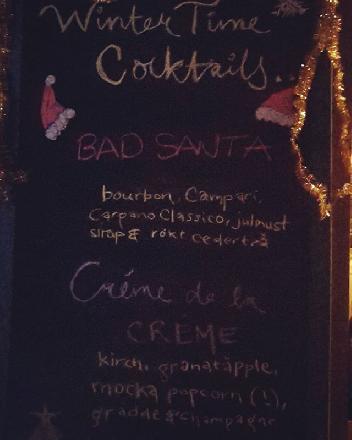 Winter Time
Cocktails..
BAD SANTA
bourbon, Campari,
Carpano Classico, julmust
sirap & rökt cederträ
Créme de la
CRÉME
kirch, granatäpple,
mocka popcorn (!),
grädde & champagne